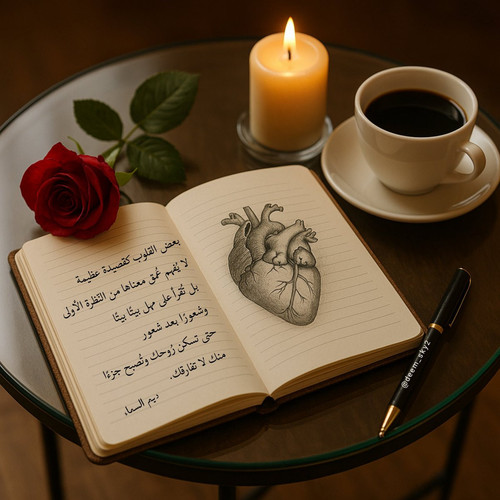 بعض القلوب كقصيدة عظيمة
لا يُفهم عُمق معناها من النظرة الأولى
بل تُقرأ على مهل بيتًا بيتًا
وشعورًا بعد شعور
حتى تسكن رُوحك وتُصبح جزءًا
منك لا تفارقك.
ديم السماء
@deem_sky2